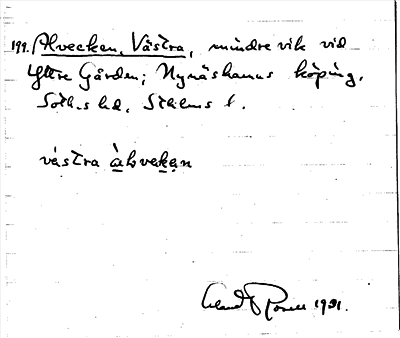 199. Alvecken, Västra, mindre vik vid
Yttre Gården; Nynäshamns köping,
Soth.s hd, Sthlms l.
västra àlvekan
1931.